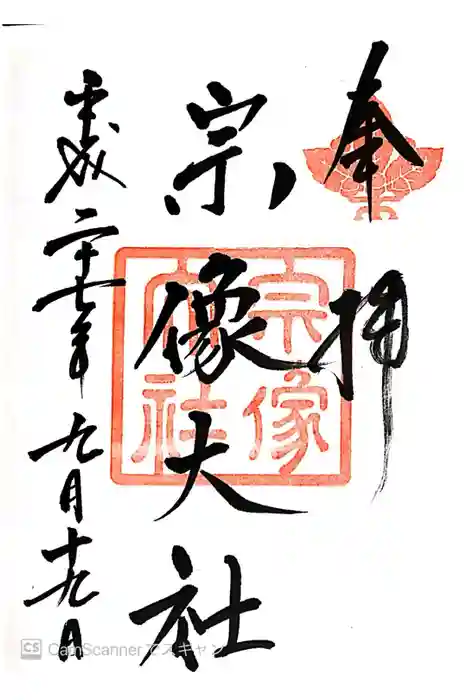 奉拝
宗像大社
宗像
大社
平成二十七年九月十九日
CS CamScannerでスキャン